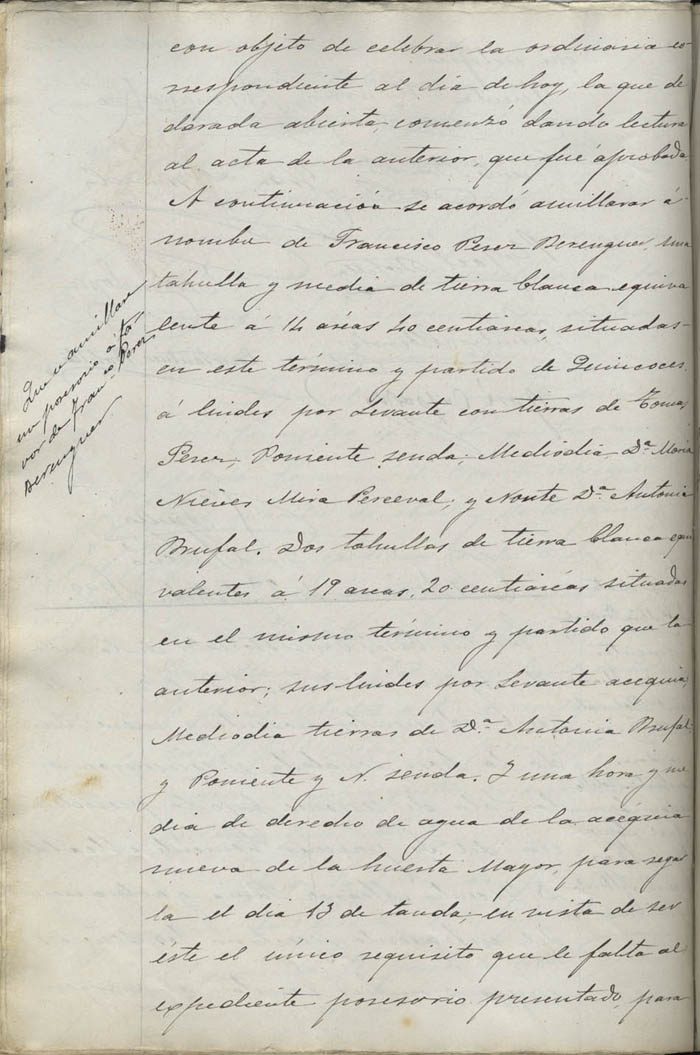 con objeto de celebrar la ordinaria co-
rrespondiente al dia de hoy, la que de
clarada abierta, comenzó dando lectura
al acta de la anterior, que fué aprobada
A continuación se acordó amillarar á
nombre de Francisco Perez Berenguer, una
tahulla y media de tierra blanca equiva
lente á 14 aréas 40 centiáreas, situadas
en este término y partido de
á lindes por Levante con tierras de Tomas
Perez, Poniente senda, Mediodia Dª Maria
Nieves Mira Perceval, y Norte Dª Antonia
Brufal. Dos tahullas de tierra blanca equi
valentes á 19 areas, 20 centiáreas situadas
en el mismo término y partido que la
anterior; sus lindes por Levante acequia,
Mediodia tierras de Dª Antonia Brufal,
y Poniente y N. senda. Y una hora y me
dia de derecho de agua de la acéquia
nueva de la huerta Mayor, para regar
la el dia 13 de tanda; en vista de ser
éste el único requisito que le falta al
expediente posesorio presentado, para
Que se amillare
un posesorio á fa-
vor de Franco Perez
Berenguer